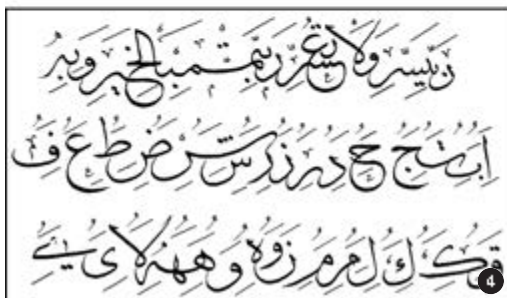 رب يسر ولا تعسر رب تمم بالخير وبه
ا ب ت ج ح د ر ز س ض ط ع ف
ق ك ل م و ه لا ى ي
4